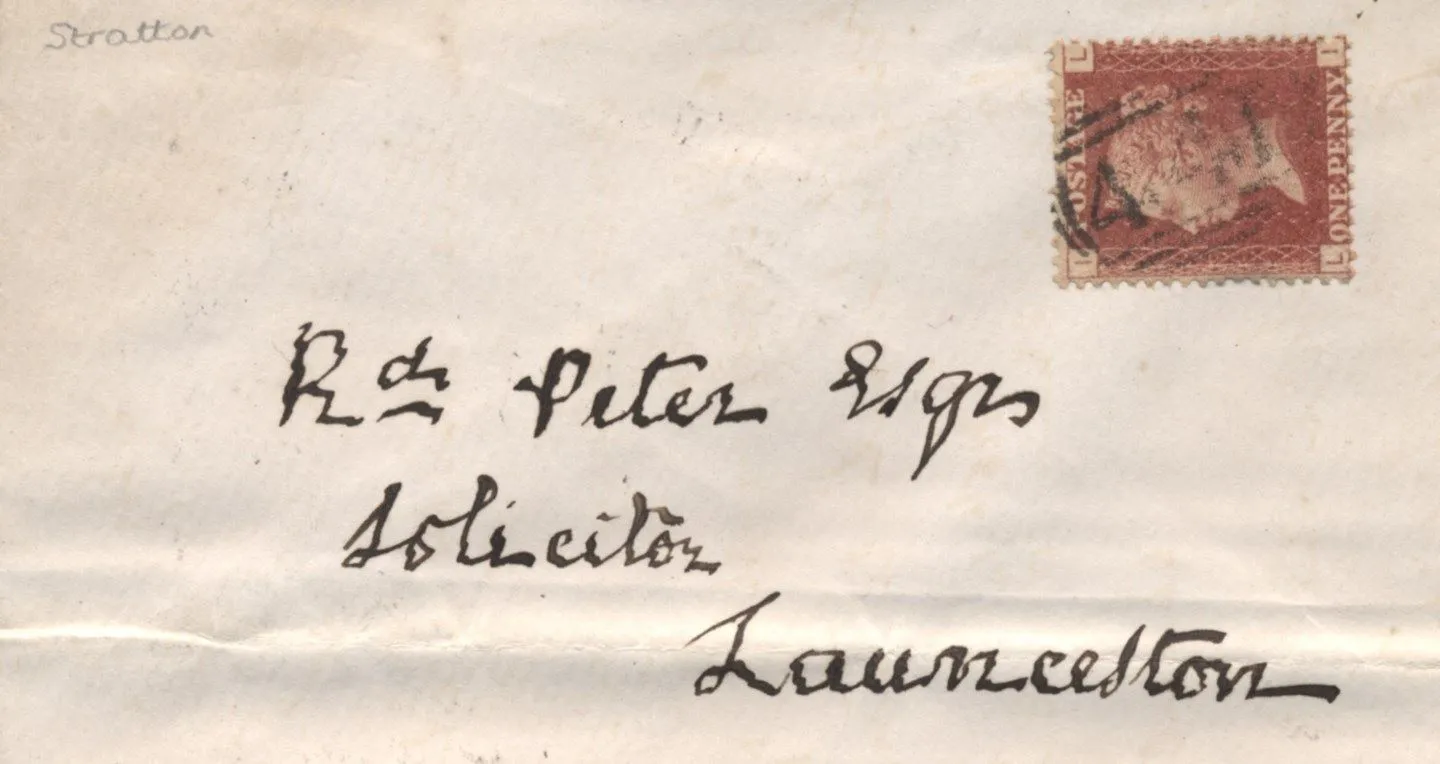 Stratton
POSTAGE
ONE PENNY
L L
L L
4
Rd Peter Esqr
Solicitor
Launceston